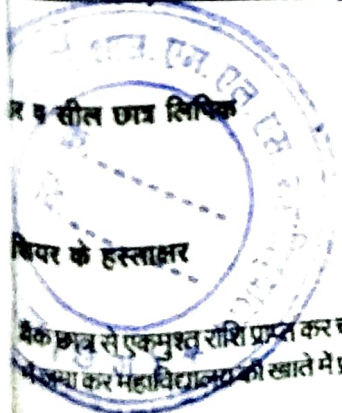 एम. एल. एस
र व सील छात्र लिपिक
शियर के हस्ताक्षर
बैंक छात्र से एकमुश्त राशि प्राप्त कर
में जमा कर महाविद्यालय की खाते में